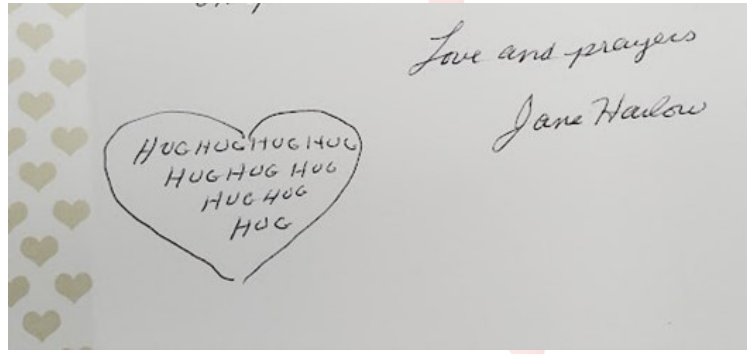 Love and prayers
Jane Harlow
HUG HUG HUG HUG
HUG HUG HUG
HUG HUG
HUG